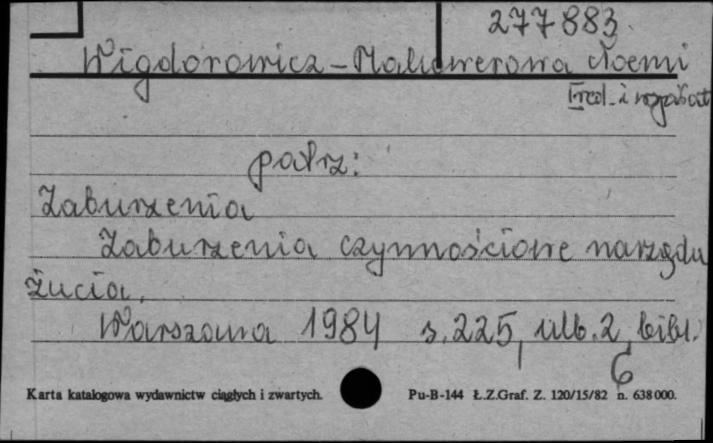 277883
Wigdorowicz-Makowerowa Noemi
red. i współaut
patrz:
Zaburzenia
Zaburzenia czynnościowe narządu
żucia.
Warszawa 1984 s. 225, ulb. 2, bibl.
6
Karta katalogowa wydawnictw ciągłych i zwartych. Pu-B-144 Ł.Z.Graf. Z. 120/15/82 n. 638000.